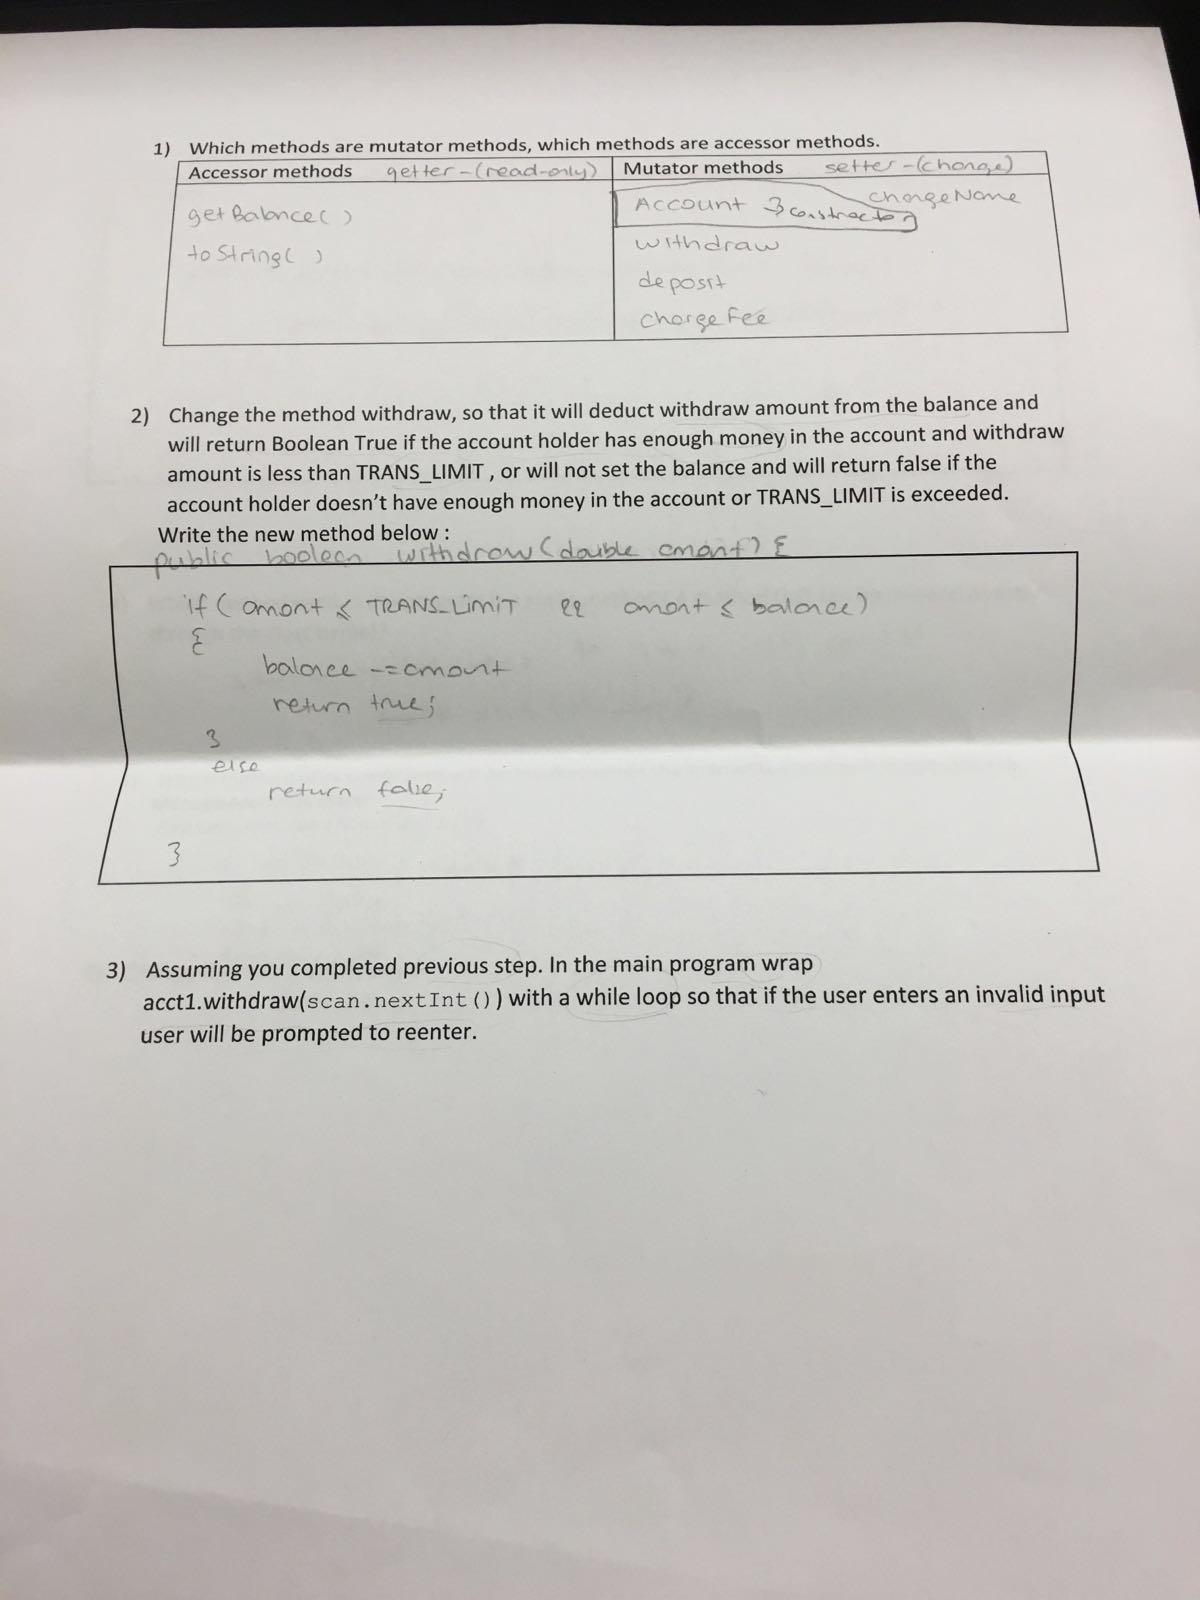 1) Which methods are mutator methods, which methods are accessor methods.
Accessor methods getter - (read-only)
getBalance()
toString( )
Mutator methods setter - (change)
changeName
Account } constructor
withdraw
deposit
chargeFee
2) Change the method withdraw, so that it will deduct withdraw amount from the balance and
will return Boolean True if the account holder has enough money in the account and withdraw
amount is less than TRANS_LIMIT , or will not set the balance and will return false if the
account holder doesn't have enough money in the account or TRANS_LIMIT is exceeded.
Write the new method below :
public boolean withdraw (double amont) {
if ( amont ≤ TRANS_LIMIT && amont ≤ balance)
{
balance -= amount
return true;
}
else
return false;
}
3) Assuming you completed previous step. In the main program wrap
acct1.withdraw(scan.nextInt()) with a while loop so that if the user enters an invalid input
user will be prompted to reenter.